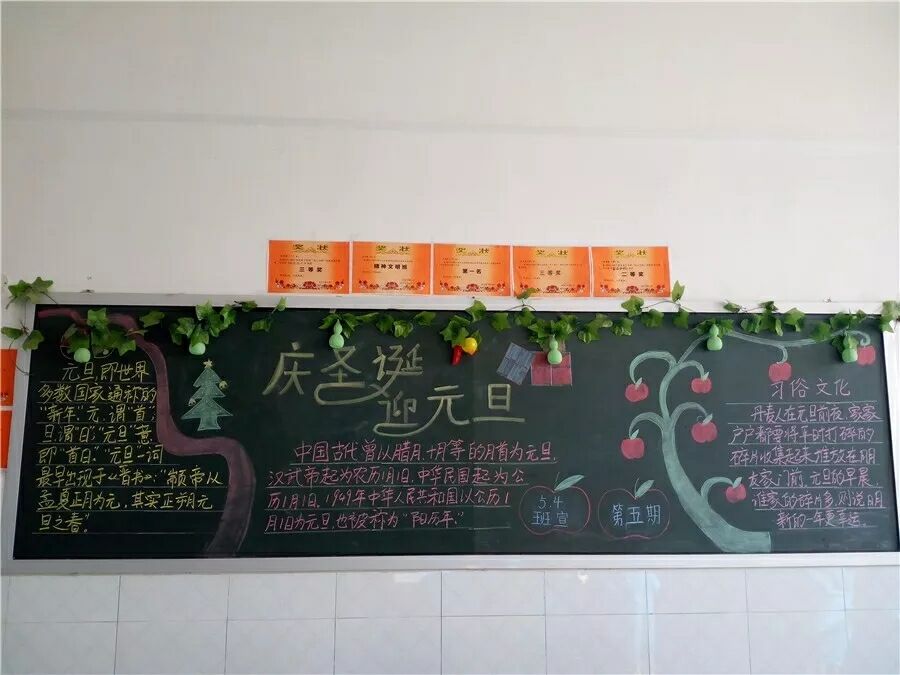 奖状
三等奖
奖状
精神文明班
奖状
第一名
奖状
三等奖
奖状
二等奖
元旦即世界
多数国家通称的
"新年"元,谓"首"
旦谓"日";"元旦"意
即"首日"."元旦"一词
最早出现于《晋书》:"颛帝以
孟夏正月为元,其实正朔元
旦之春"
庆圣诞
迎元旦
中国古代曾以腊月、十月等的月首为元旦,
汉武帝起为农历1月1日,中华民国起为公
历1月1日,1949年中华人民共和国以公历1
月1日为元旦也被称为"阳历年."
5.4
班宣
第五期
习俗文化
丹麦人在元旦前夜,家家
户户都要将平时打碎的
碎片收集起来堆放在朋
友家门前,元旦的早晨,
谁家的碎片多,则说明
新的一年更幸运.